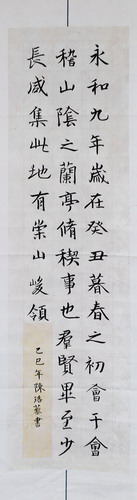 永和九年歲在癸丑暮春之初會于會
稽山陰之蘭亭脩稧事也羣賢畢至少
長咸集此地有崇山峻領
乙巳年陳浩藜書